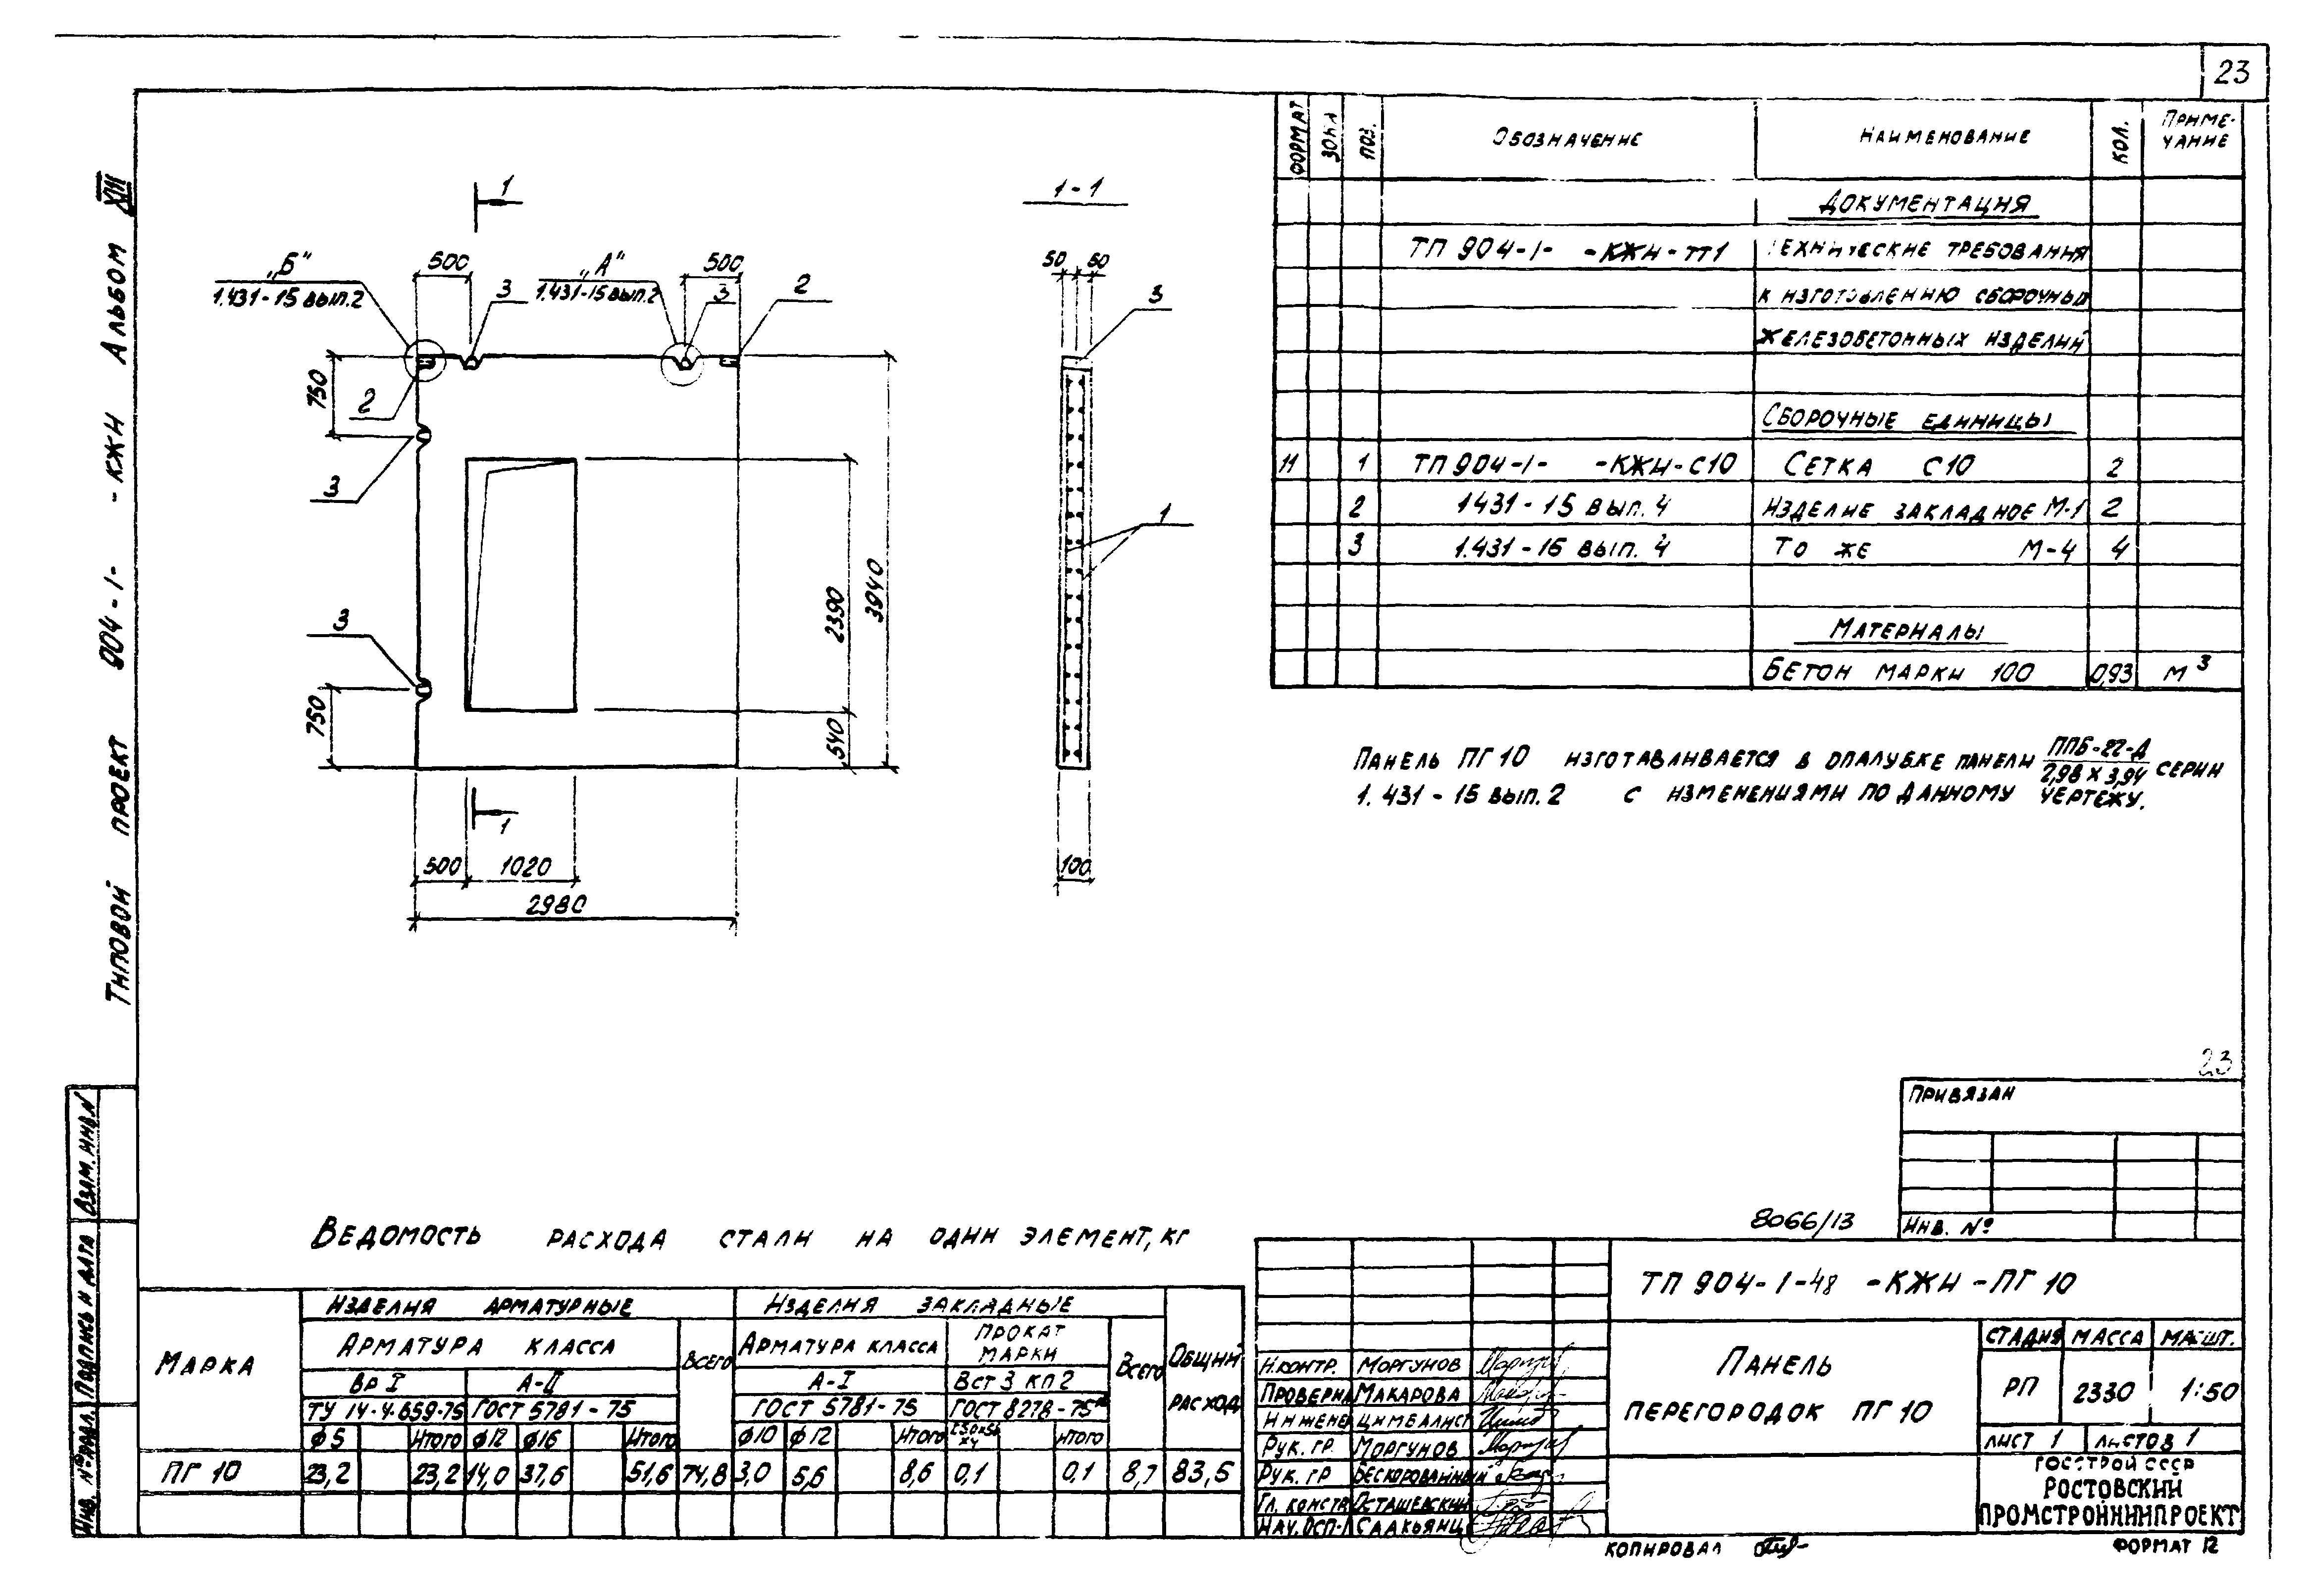 23
Типовой проект 904-1- -КЖИ Альбом XIII
1
1-1
„Б"
1.431-15 вып.2
500
3
„А"
1.431-15 вып.2
500
3
2
50 50
3
750
2
3
1
2390
3940
3
750
540
1
500
1020
2980
100
Формат Зона Поз. Обозначение Наименование Кол. Примечание
Документация
ТП 904-1- -КЖИ-тт1 Технические требования
к изготовлению сборочных
железобетонных изделий
Сборочные единицы
11 1 ТП 904-1- -КЖИ-С10 Сетка С10 2
2 1431-15 вып. 4 Изделие закладное М-1 2
3 1.431-15 вып. 4 То же М-4 4
Материалы
Бетон марки 100 0,93 м3
Панель ПГ 10 изготавливается в опалубке панели ППБ-22-Д / 2,98 х 3,94 серии
1.431-15 вып.2 с изменениями по данному чертежу.
23
Привязан
Инв. №
8066/13
Ведомость расхода стали на один элемент, кг
Марка
Изделия арматурные Изделия закладные Общий расход
Арматура класса Всего Арматура класса Прокат марки Всего
Вр I А-II А-I Вст 3 кп2
ТУ 14-4-659-75 ГОСТ 5781-75 ГОСТ 5781-75 ГОСТ 8278-75*
ф5 Итого ф12 ф16 Итого ф10 ф12 Итого Итого
ПГ 10 23,2 23,2 14,0 37,6 51,6 74,8 3,0 5,6 8,6 0,1 0,1 8,7 83,5
ТП 904-1-48 -КЖИ-ПГ 10
Н.контр. Моргунов
Проверил Макарова
Инжене Цимбалист
Рук. гр. Моргунов
Рук. гр Бескорованный
Гл. констр Осташевский
Нач. осп-1 Саакьянц
Панель
перегородок ПГ 10
Стадия Масса Масшт.
РП 2330 1:50
Лист 1 Листов 1
Госстрой СССР
Ростовский
Промстройниипроект
Инв. № подл. Подпись и дата Взам. инв. №
Копировал
Формат 12